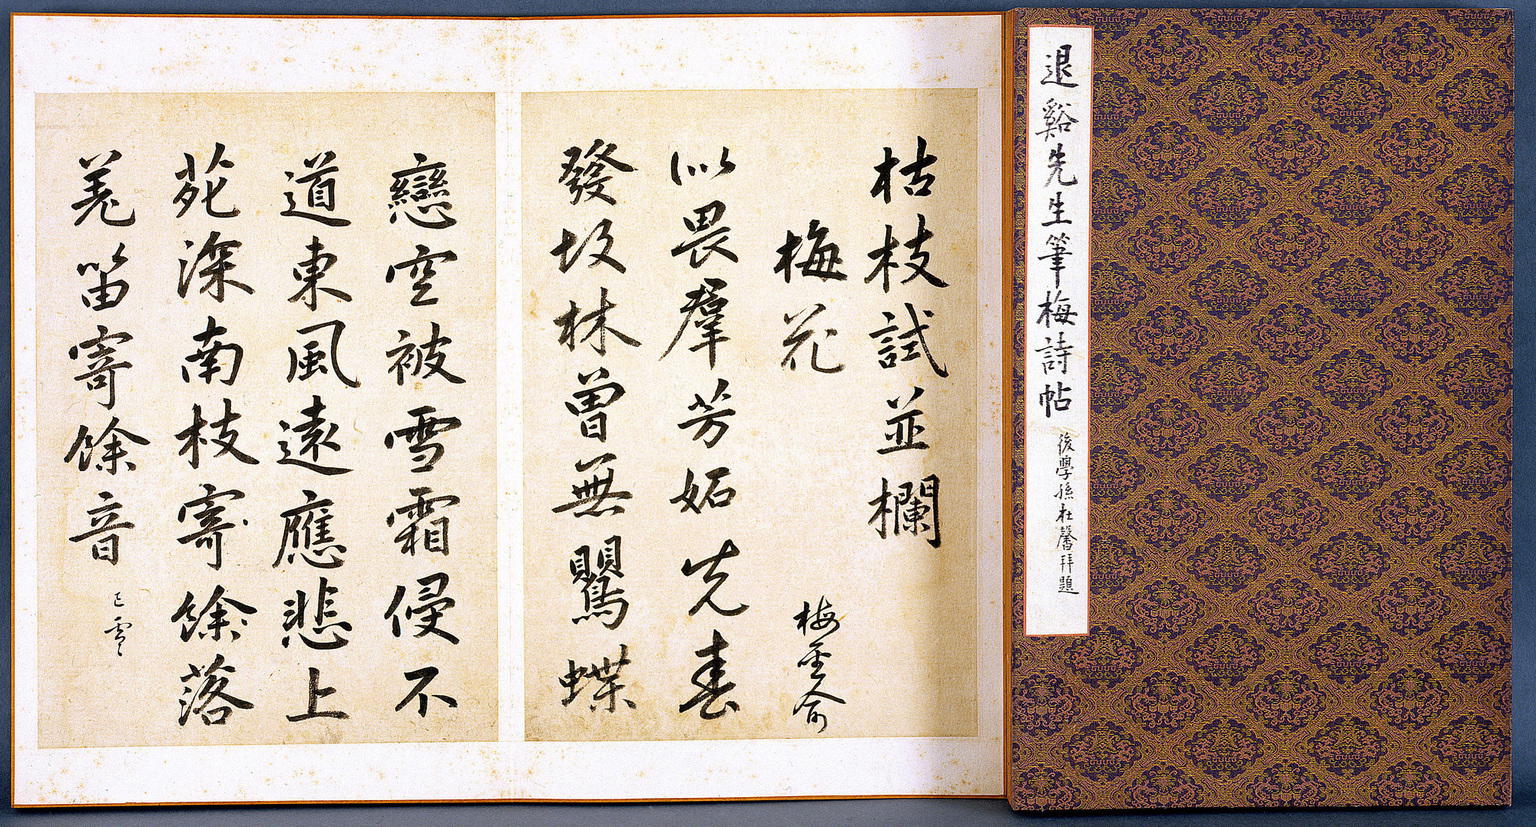 退谿先生筆梅詩帖
後學孫杜馨拜題
枯枝試並欄
梅花 梅圣俞
似畏羣芳妬先春
發故林曾無鸎蝶
戀空被雪霜侵不
道東風遠應悲上
苑深南枝寄餘落
羗笛寄餘音 已零